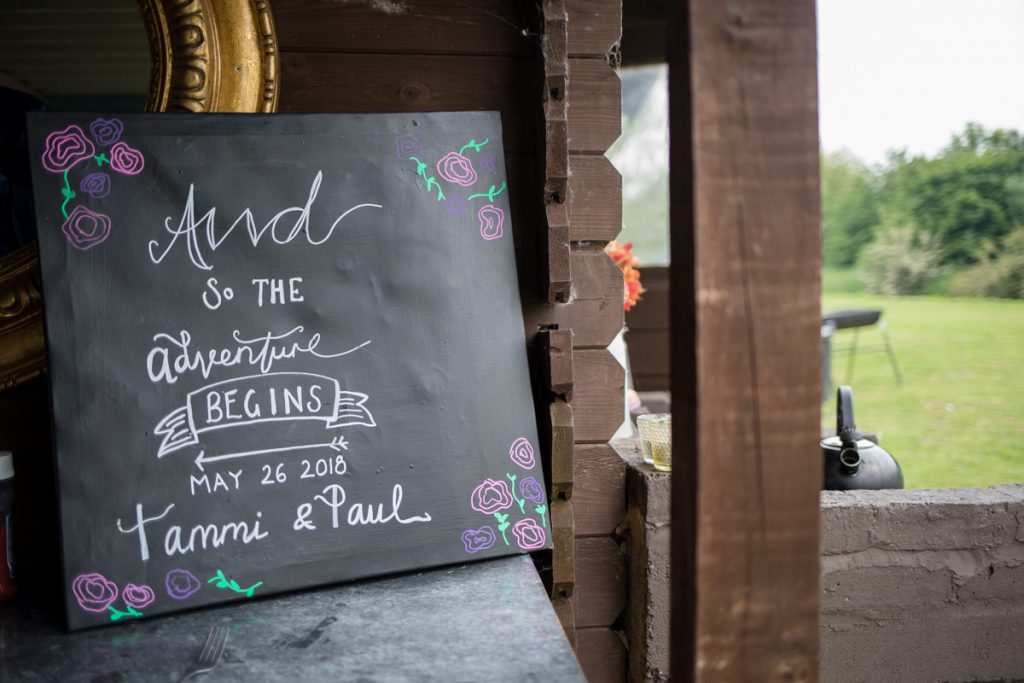 And
So THE
adventure
BEGINS
MAY 26 2018
Tammi & Paul